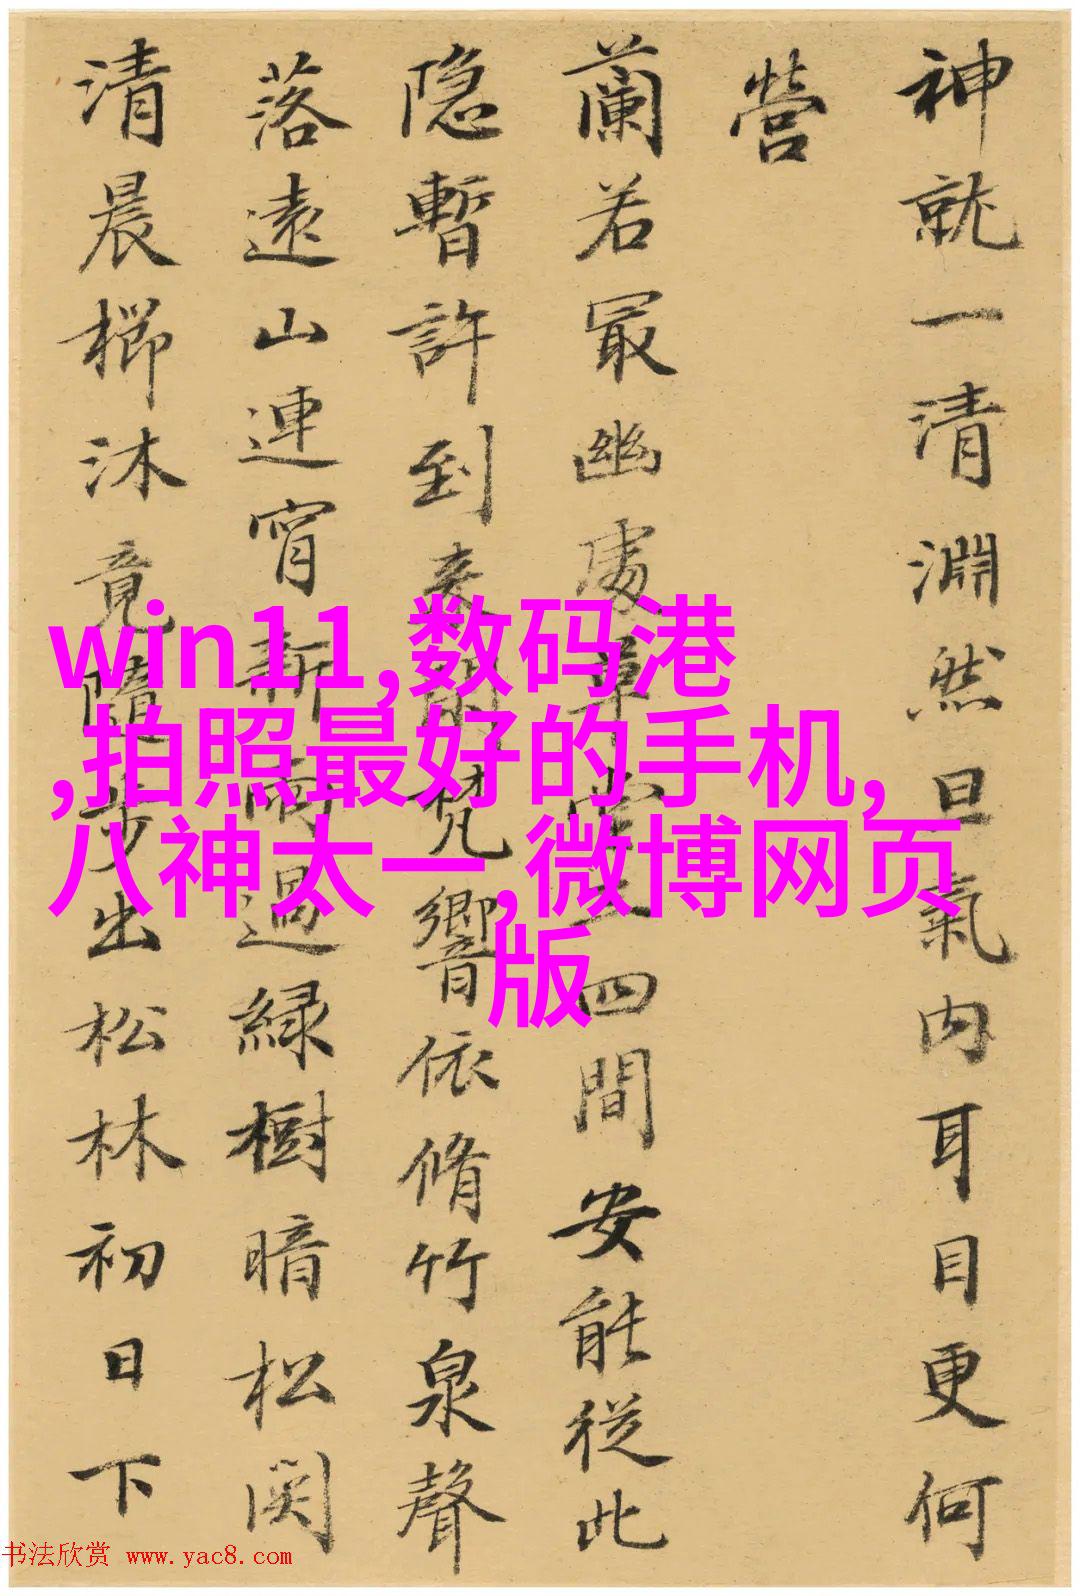 神就一清淵然旦氣内耳目更何
營
蘭若冣幽處草堂三四間安能從此
隐暫許到来閑梵響依脩竹泉聲
落遠山連宵新雨過緑樹暗松関
清晨櫛沐竟隨步出松林初日下
win11,数码港
,拍照最好的手机,
八神太一,微博网页
版
书法欣赏 www.yac8.com